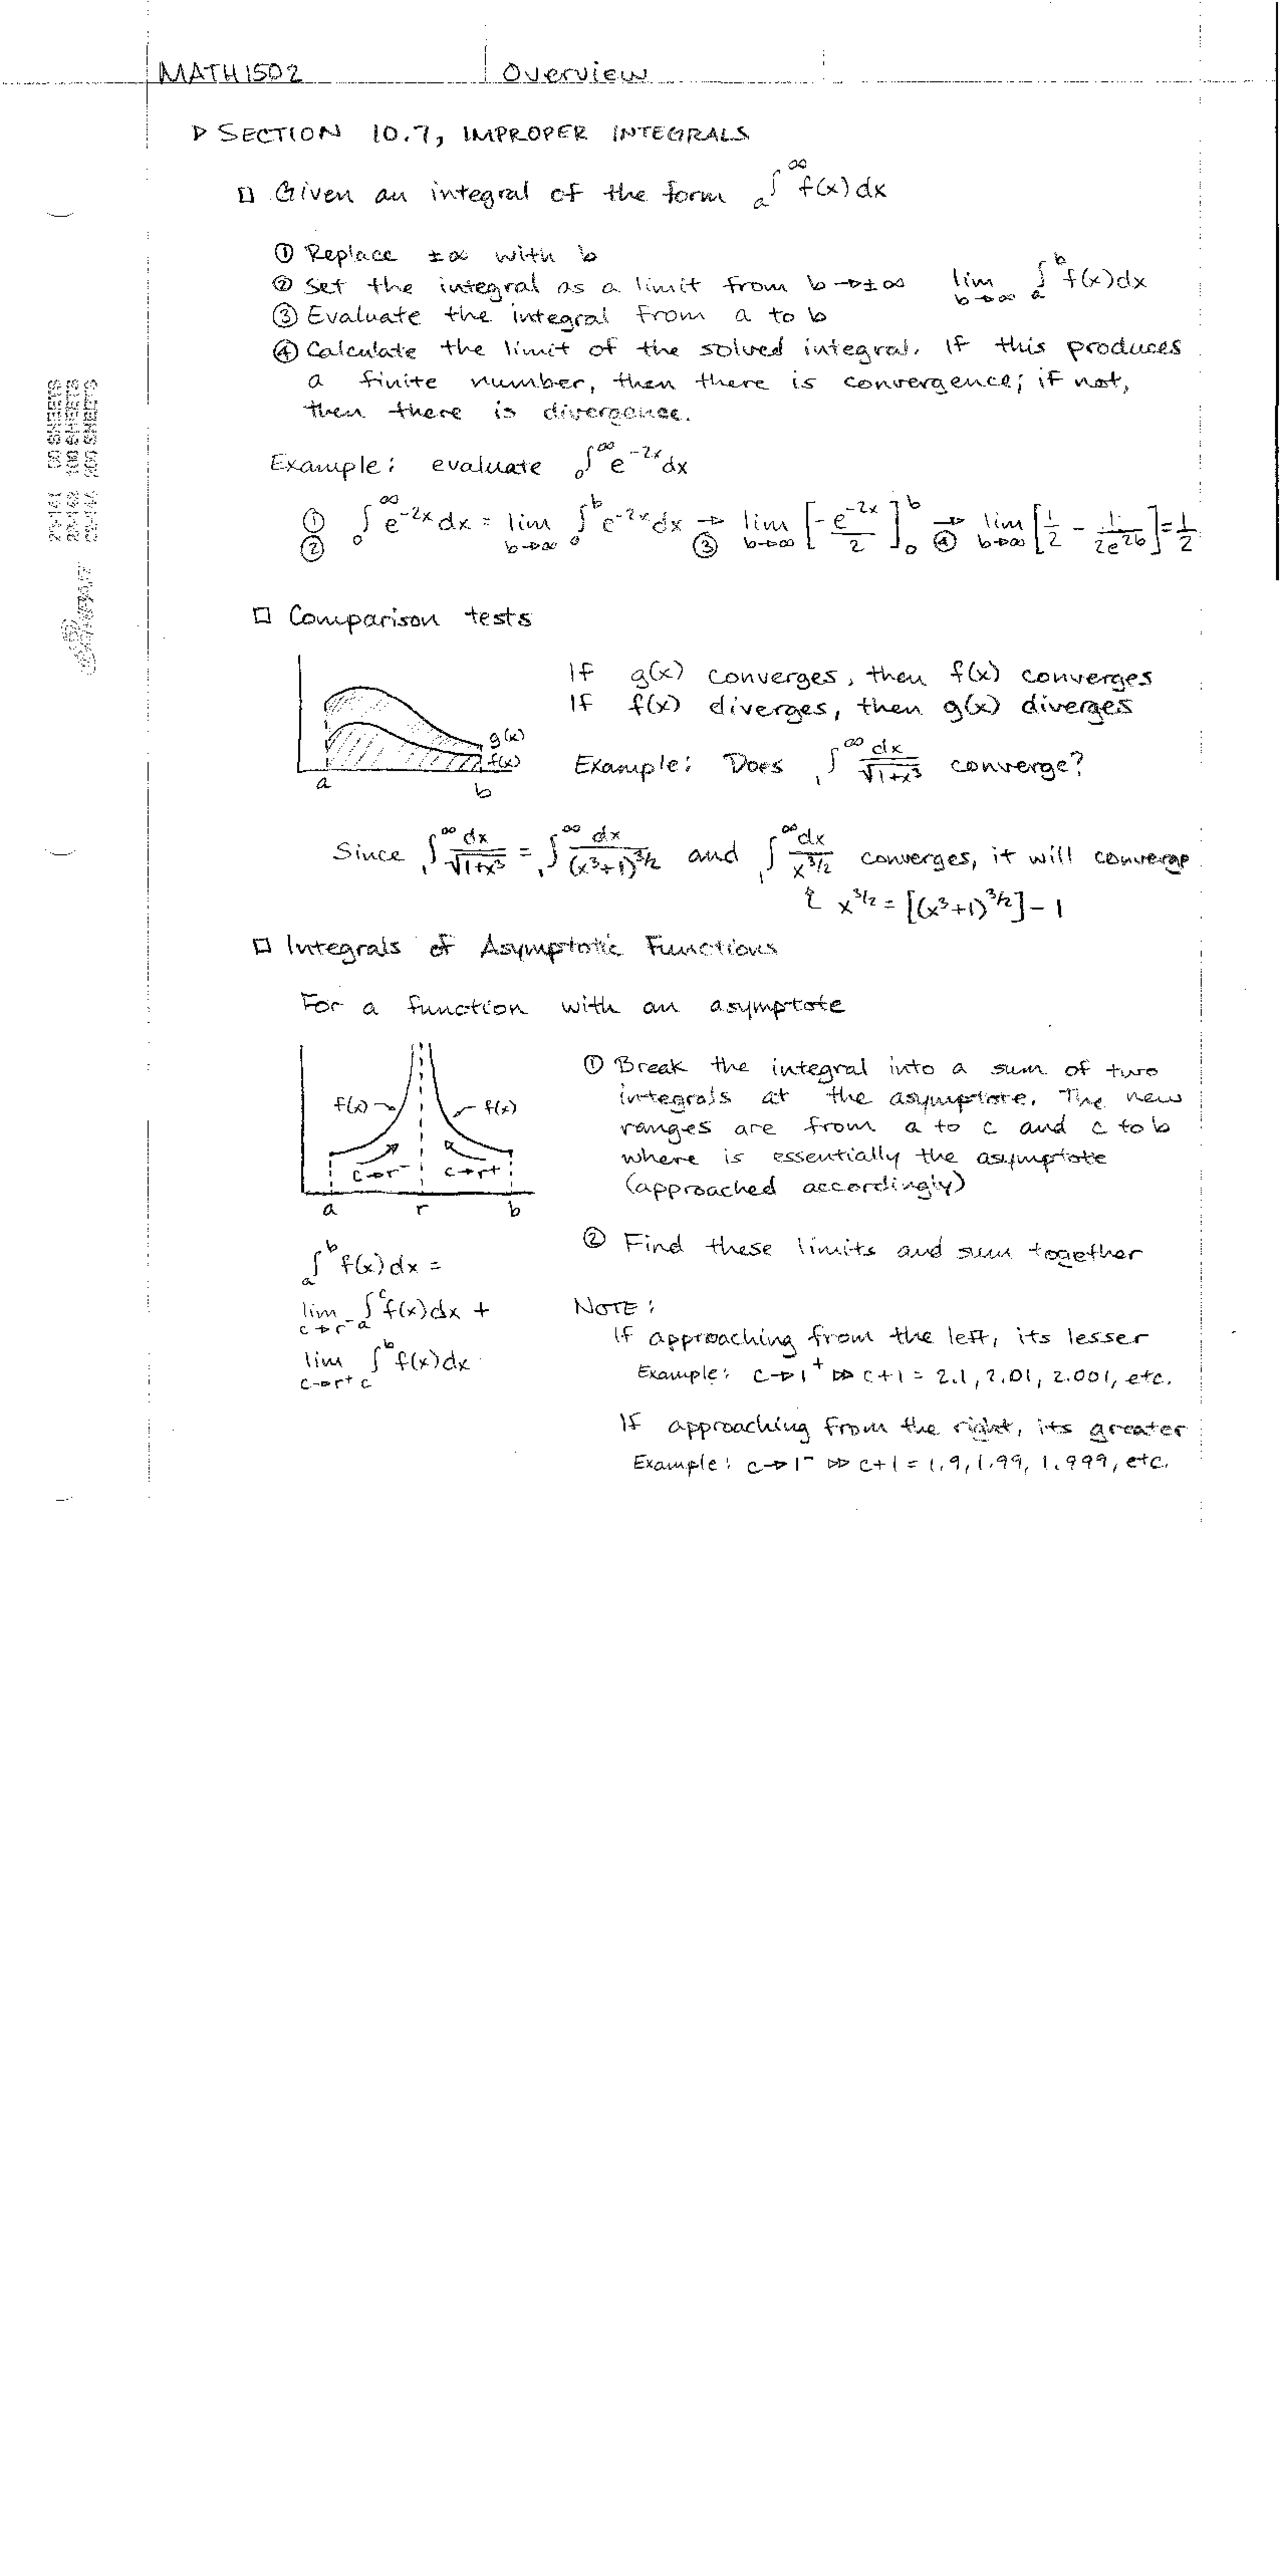 MATH 1502 Overview
▷ SECTION 10.7, IMPROPER INTEGRALS
□ Given an integral of the form ₐ∫^∞ f(x)dx
① Replace ±∞ with b
② Set the integral as a limit from b→±∞ lim b→∞ ₐ∫^b f(x)dx
③ Evaluate the integral from a to b
④ Calculate the limit of the solved integral. If this produces
a finite number, then there is convergence; if not,
then there is divergence.
Example: evaluate ₀∫^∞ e^-2x dx
① ② ₀∫^∞ e^-2x dx = lim b→∞ ₀∫^b e^-2x dx →③ lim b→∞ [-e^-2x/2]₀^b →④ lim b→∞ [1/2 - 1/2e^2b] = 1/2
□ Comparison tests
If g(x) converges, then f(x) converges
If f(x) diverges, then g(x) diverges
g(x)
f(x)
a b
Example: Does ₁∫^∞ dx/√1+x³ converge?
Since ₁∫^∞ dx/√1+x³ = ₁∫^∞ dx/(x³+1)^3/2 and ₁∫^∞ dx/x^3/2 converges, it will converge
↑ x^3/2 = [(x³+1)^3/2] - 1
□ Integrals of Asymptotic Functions
For a function with an asymptote
f(x) f(x)
c→r⁻ c→r⁺
a r b
① Break the integral into a sum of two
integrals at the asymptote. The new
ranges are from a to c and c to b
where is essentially the asymptote
(approached accordingly)
② Find these limits and sum together
ₐ∫^b f(x)dx =
lim c→r⁻ ₐ∫^c f(x)dx +
lim c→r⁺ c∫^b f(x)dx
NOTE:
If approaching from the left, its lesser
Example: c→1⁺ ▷▷ c+1 = 2.1, 2.01, 2.001, etc.
If approaching from the right, its greater
Example: c→1⁻ ▷▷ c+1 = 1.9, 1.99, 1.999, etc.